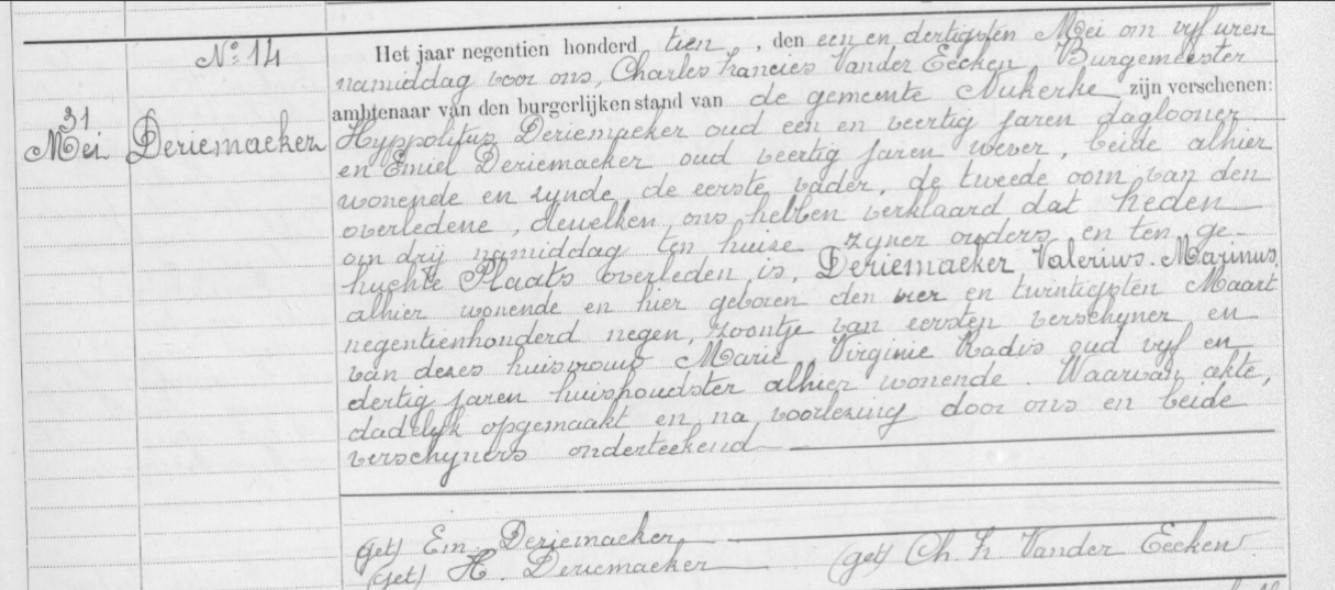 Nº 14
31
Mei
Deriemaeker
Het jaar negentien honderd tien, den een en dertigsten Mei om vyf uren
namiddag voor ons, Charles Francies Vander Eecken, Burgemeester
ambtenaar van den burgerlijken stand van de gemeente Nukerke zijn verschenen:
Hyppolitus Deriemaeker oud een en veertig jaren daglooner
en Emiel Deriemaeker oud veertig jaren wever, beide alhier
wonende en zynde, de eerste vader, de tweede oom van den
overledene, dewelken ons hebben verklaard dat heden
om drij namiddag ten huize zyner ouders en ten ge-
huchte Plaats overleden is, Deriemaeker Valerius Marinus,
alhier wonende en hier geboren den vier en twintigsten Maart
negentienhonderd negen, zoontje van eersten verschyner en
van dezes huisvrouw Marie Virginie Radis oud vyf en
dertig jaren huishoudster alhier wonende. Waarvan akte,
dadelyk opgemaakt en na voorlezing door ons en beide
verschyners onderteekend
(get) Em Deriemaeker
(get) H. Deriemaeker (get) Ch. Fr Vander Eecken